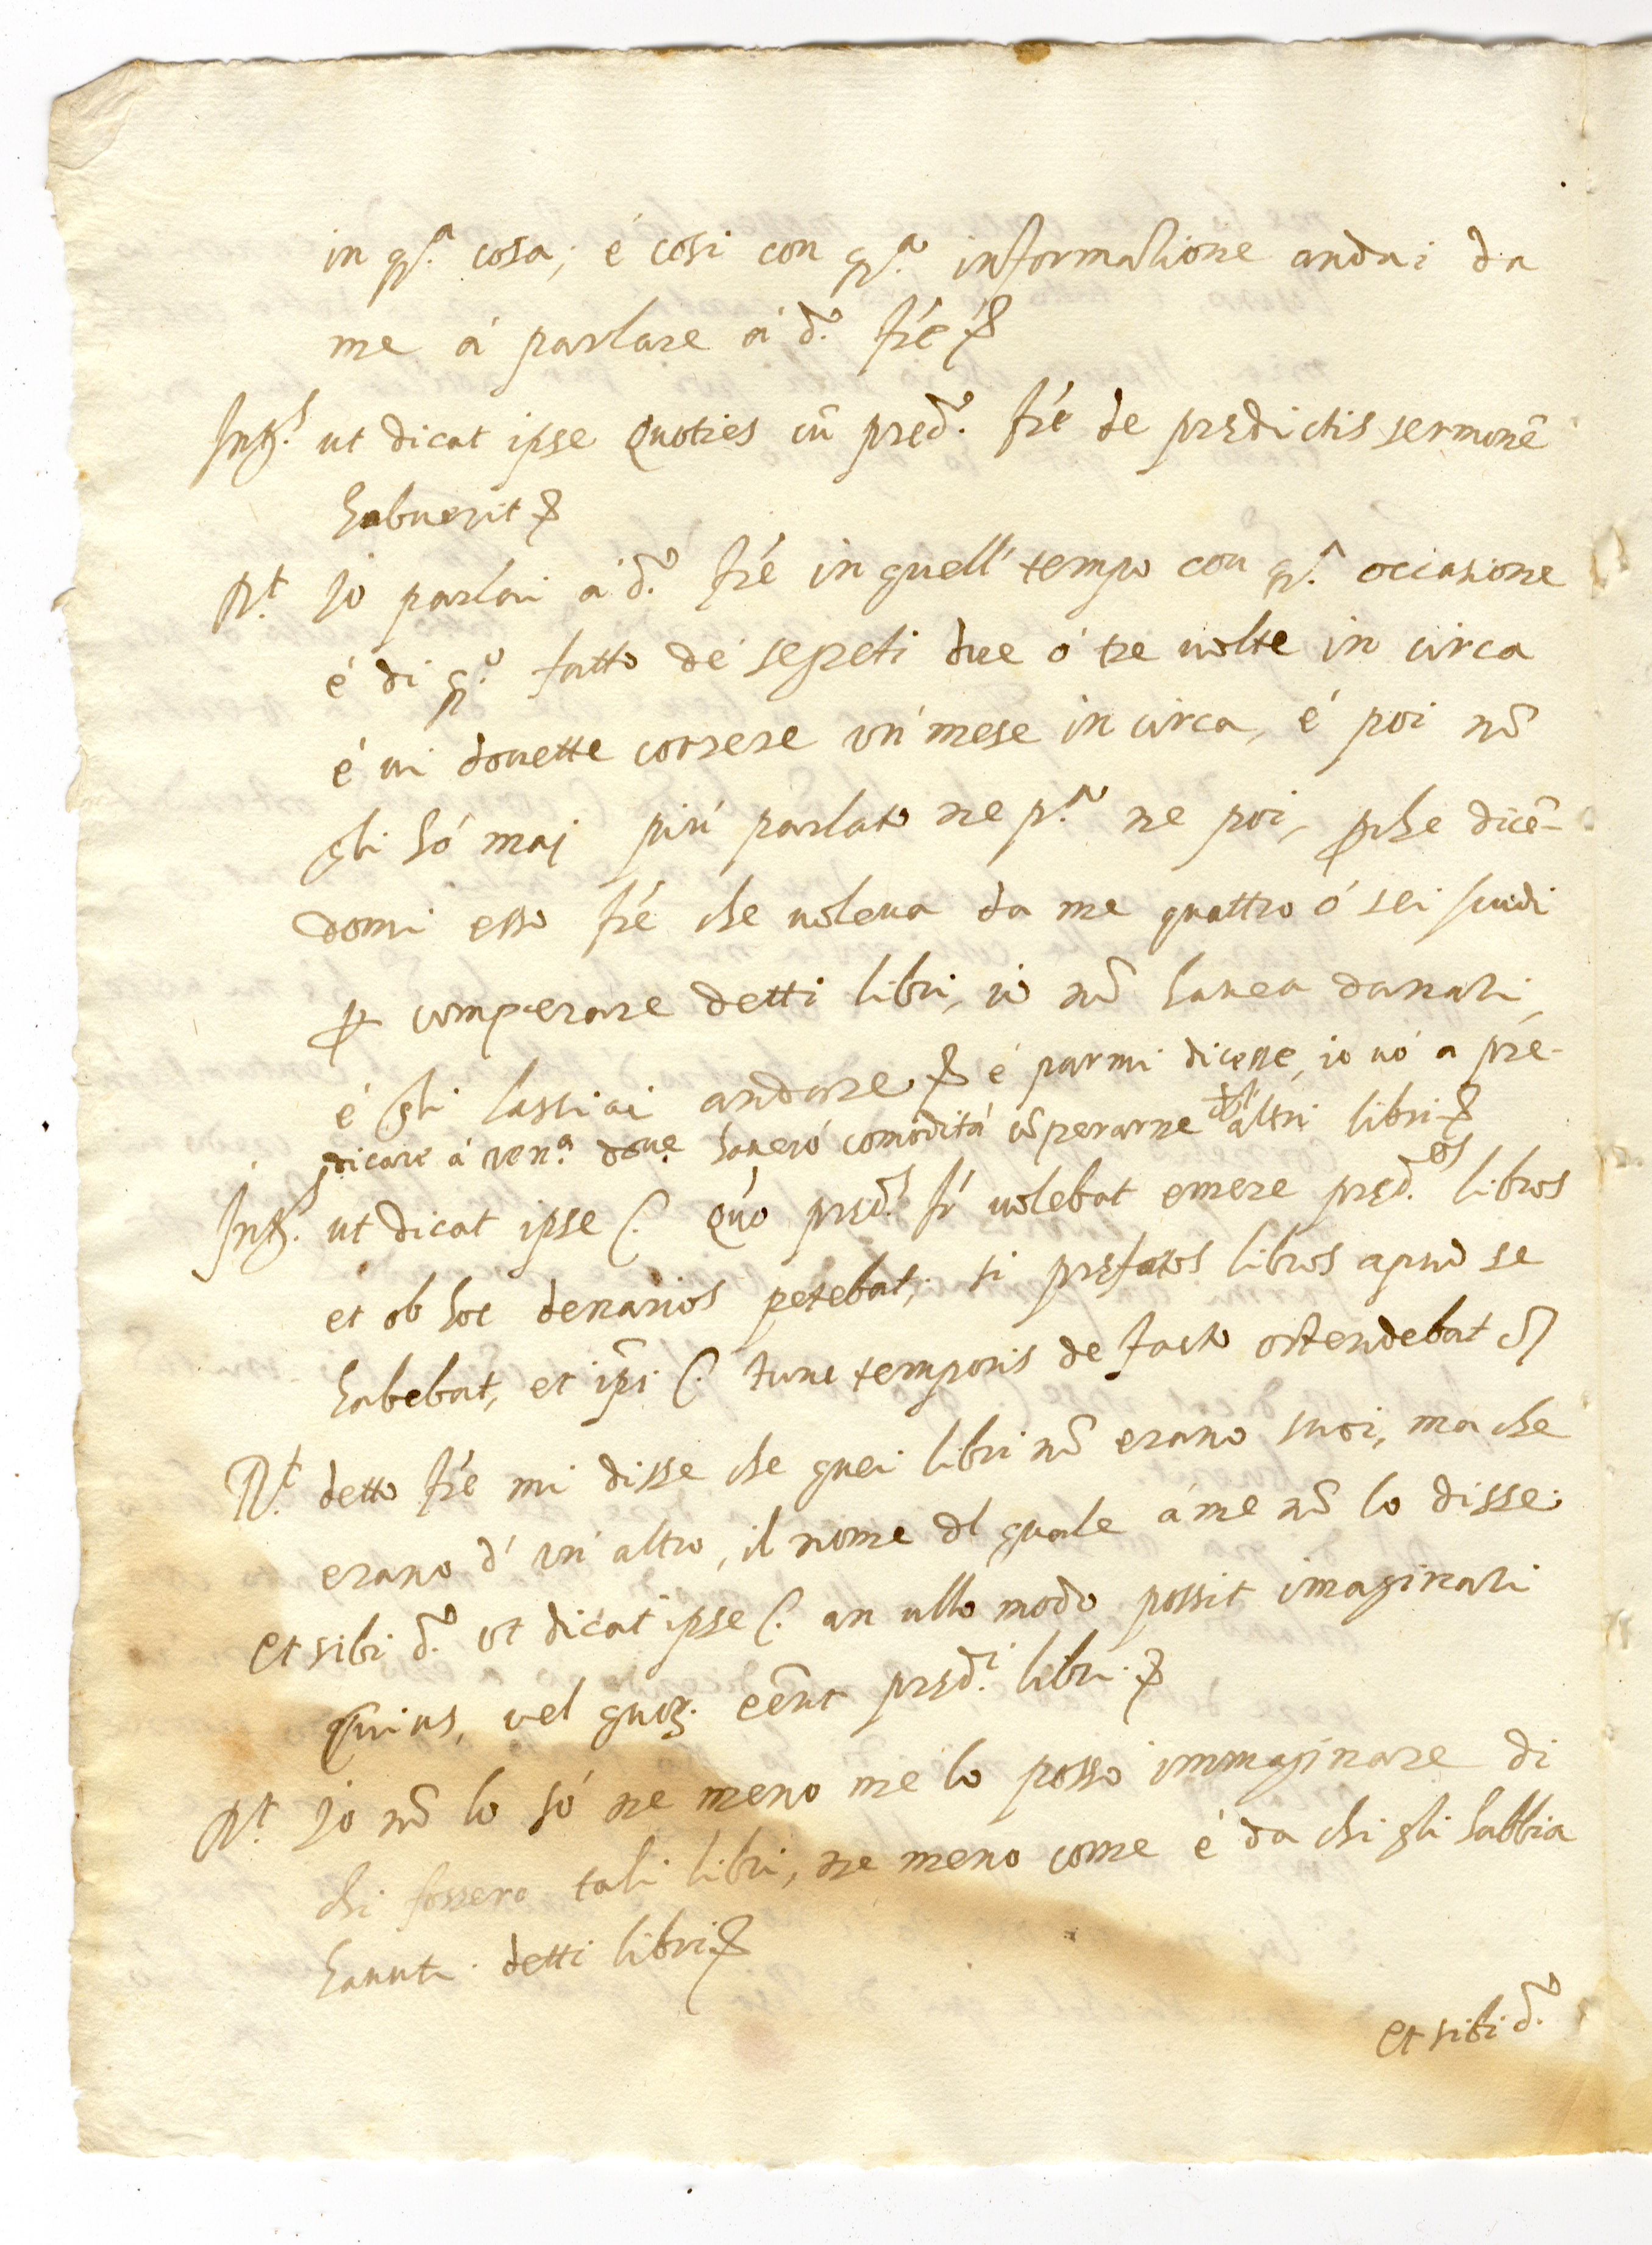 in q.ᵃ cosa; é cosi con q.ᵃ informatione andai da
me á parlare á d.º fré
Inṭ.ˢ ut dicat ipse quoties cũ pred.º fré de prędictis sermonẽ
habuerit
R.ᵗ Io parlai á d.º fré in quell' tempo con q.ᵃ occasione
é di q.º fatto dé segreti due ó tre uolte in circa
é ui douette correre un' mese in circa, é poi nõ
gli hó maj piú parlato ne p.ᵃ ne poi, ꝑche dicẽ-
domi esso fré che uoleua da me quattro ó sei scudi
ꝑ comperare detti libri, io nõ hauea danari,
é gli lassiai andare é parmi dicesse, io uó a pre-
dicare á ven.ᵃ doue haueró comoditá cõperarne altri libri
Inṭ.ˢ ut dicat ipse C. quó pręd.ˢ fr uolebat emere pręd.ᵒˢ libros
et ob hoc denarios petebat, si pręfatos libros apud se
habebat, et ipsi C. tunc temporis de facto ostendebat
R.ᵗ detto fré mi disse che quei libri nõ erano suoi, ma che
erano d' un' altro, il nome dl quale á me nõ lo disse.
Et sibi d.º ut dicat ipse C. an ullo modo possit imaginari
cuius, uel quoꝝ eẽnt pręd.ⁱ libri
R.ᵗ Io nõ lo só ne meno me lo posso immaginare di
chi fossero tali libri, ne meno come é da chi gli habbia
hauuti detti libri
Et sibi d.º